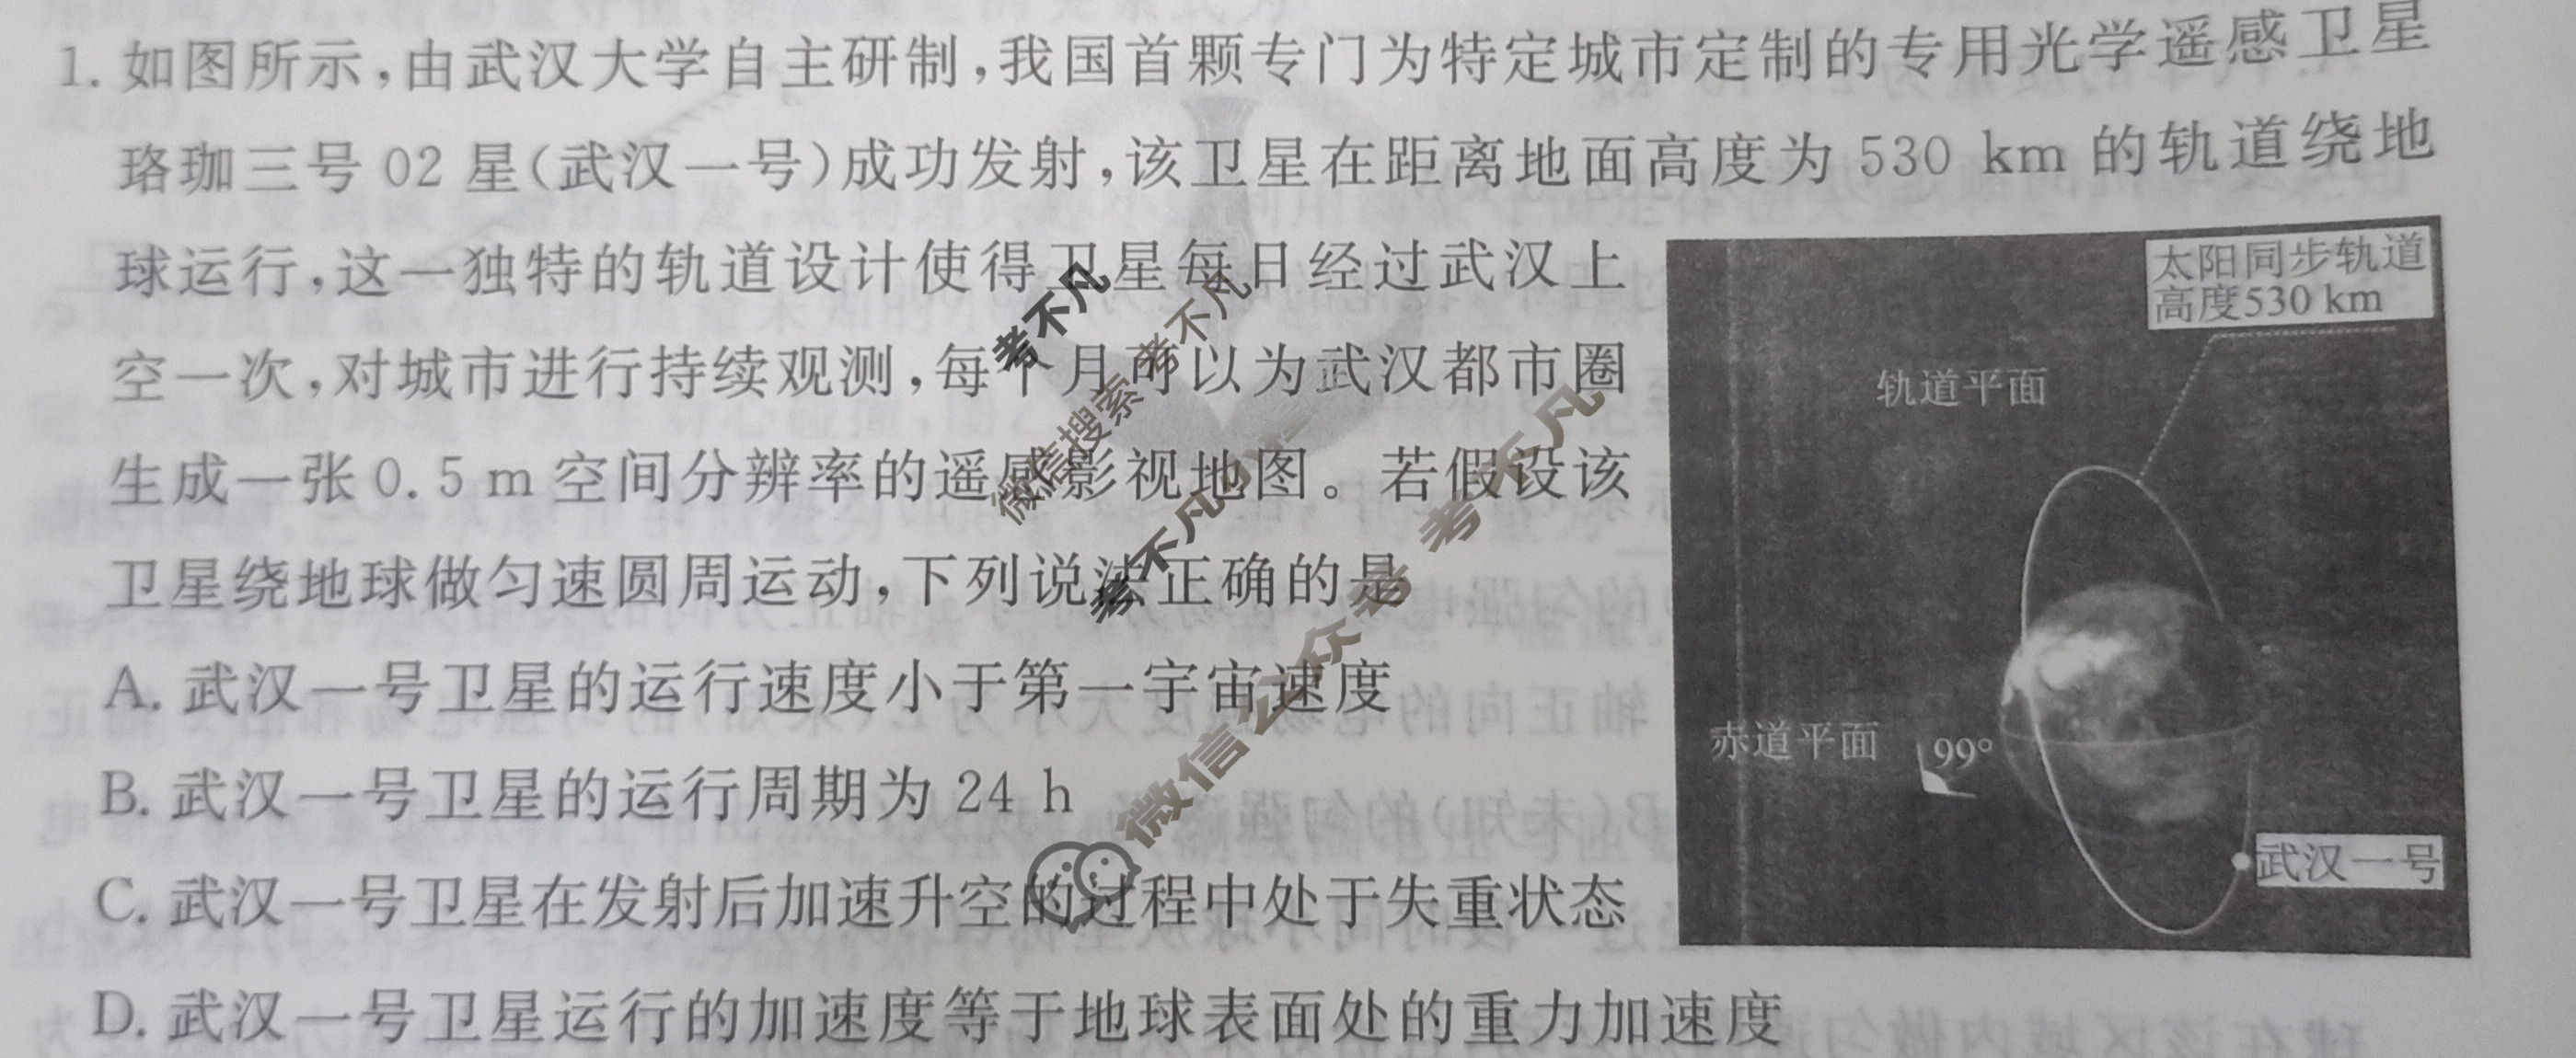 1. 如图所示,由武汉大学自主研制,我国首颗专门为特定城市定制的专用光学遥感卫星
珞珈三号 02 星(武汉一号)成功发射,该卫星在距离地面高度为 530 km 的轨道绕地
球运行,这一独特的轨道设计使得卫星每日经过武汉上
空一次,对城市进行持续观测,每个月可以为武汉都市圈
生成一张 0.5 m 空间分辨率的遥感影视地图。若假设该
卫星绕地球做匀速圆周运动,下列说法正确的是
A. 武汉一号卫星的运行速度小于第一宇宙速度
B. 武汉一号卫星的运行周期为 24 h
C. 武汉一号卫星在发射后加速升空的过程中处于失重状态
D. 武汉一号卫星运行的加速度等于地球表面处的重力加速度
太阳同步轨道
高度530 km
轨道平面
赤道平面
99°
武汉一号
考不凡
考不凡
微信搜索
考不凡
微信公众号 考不凡